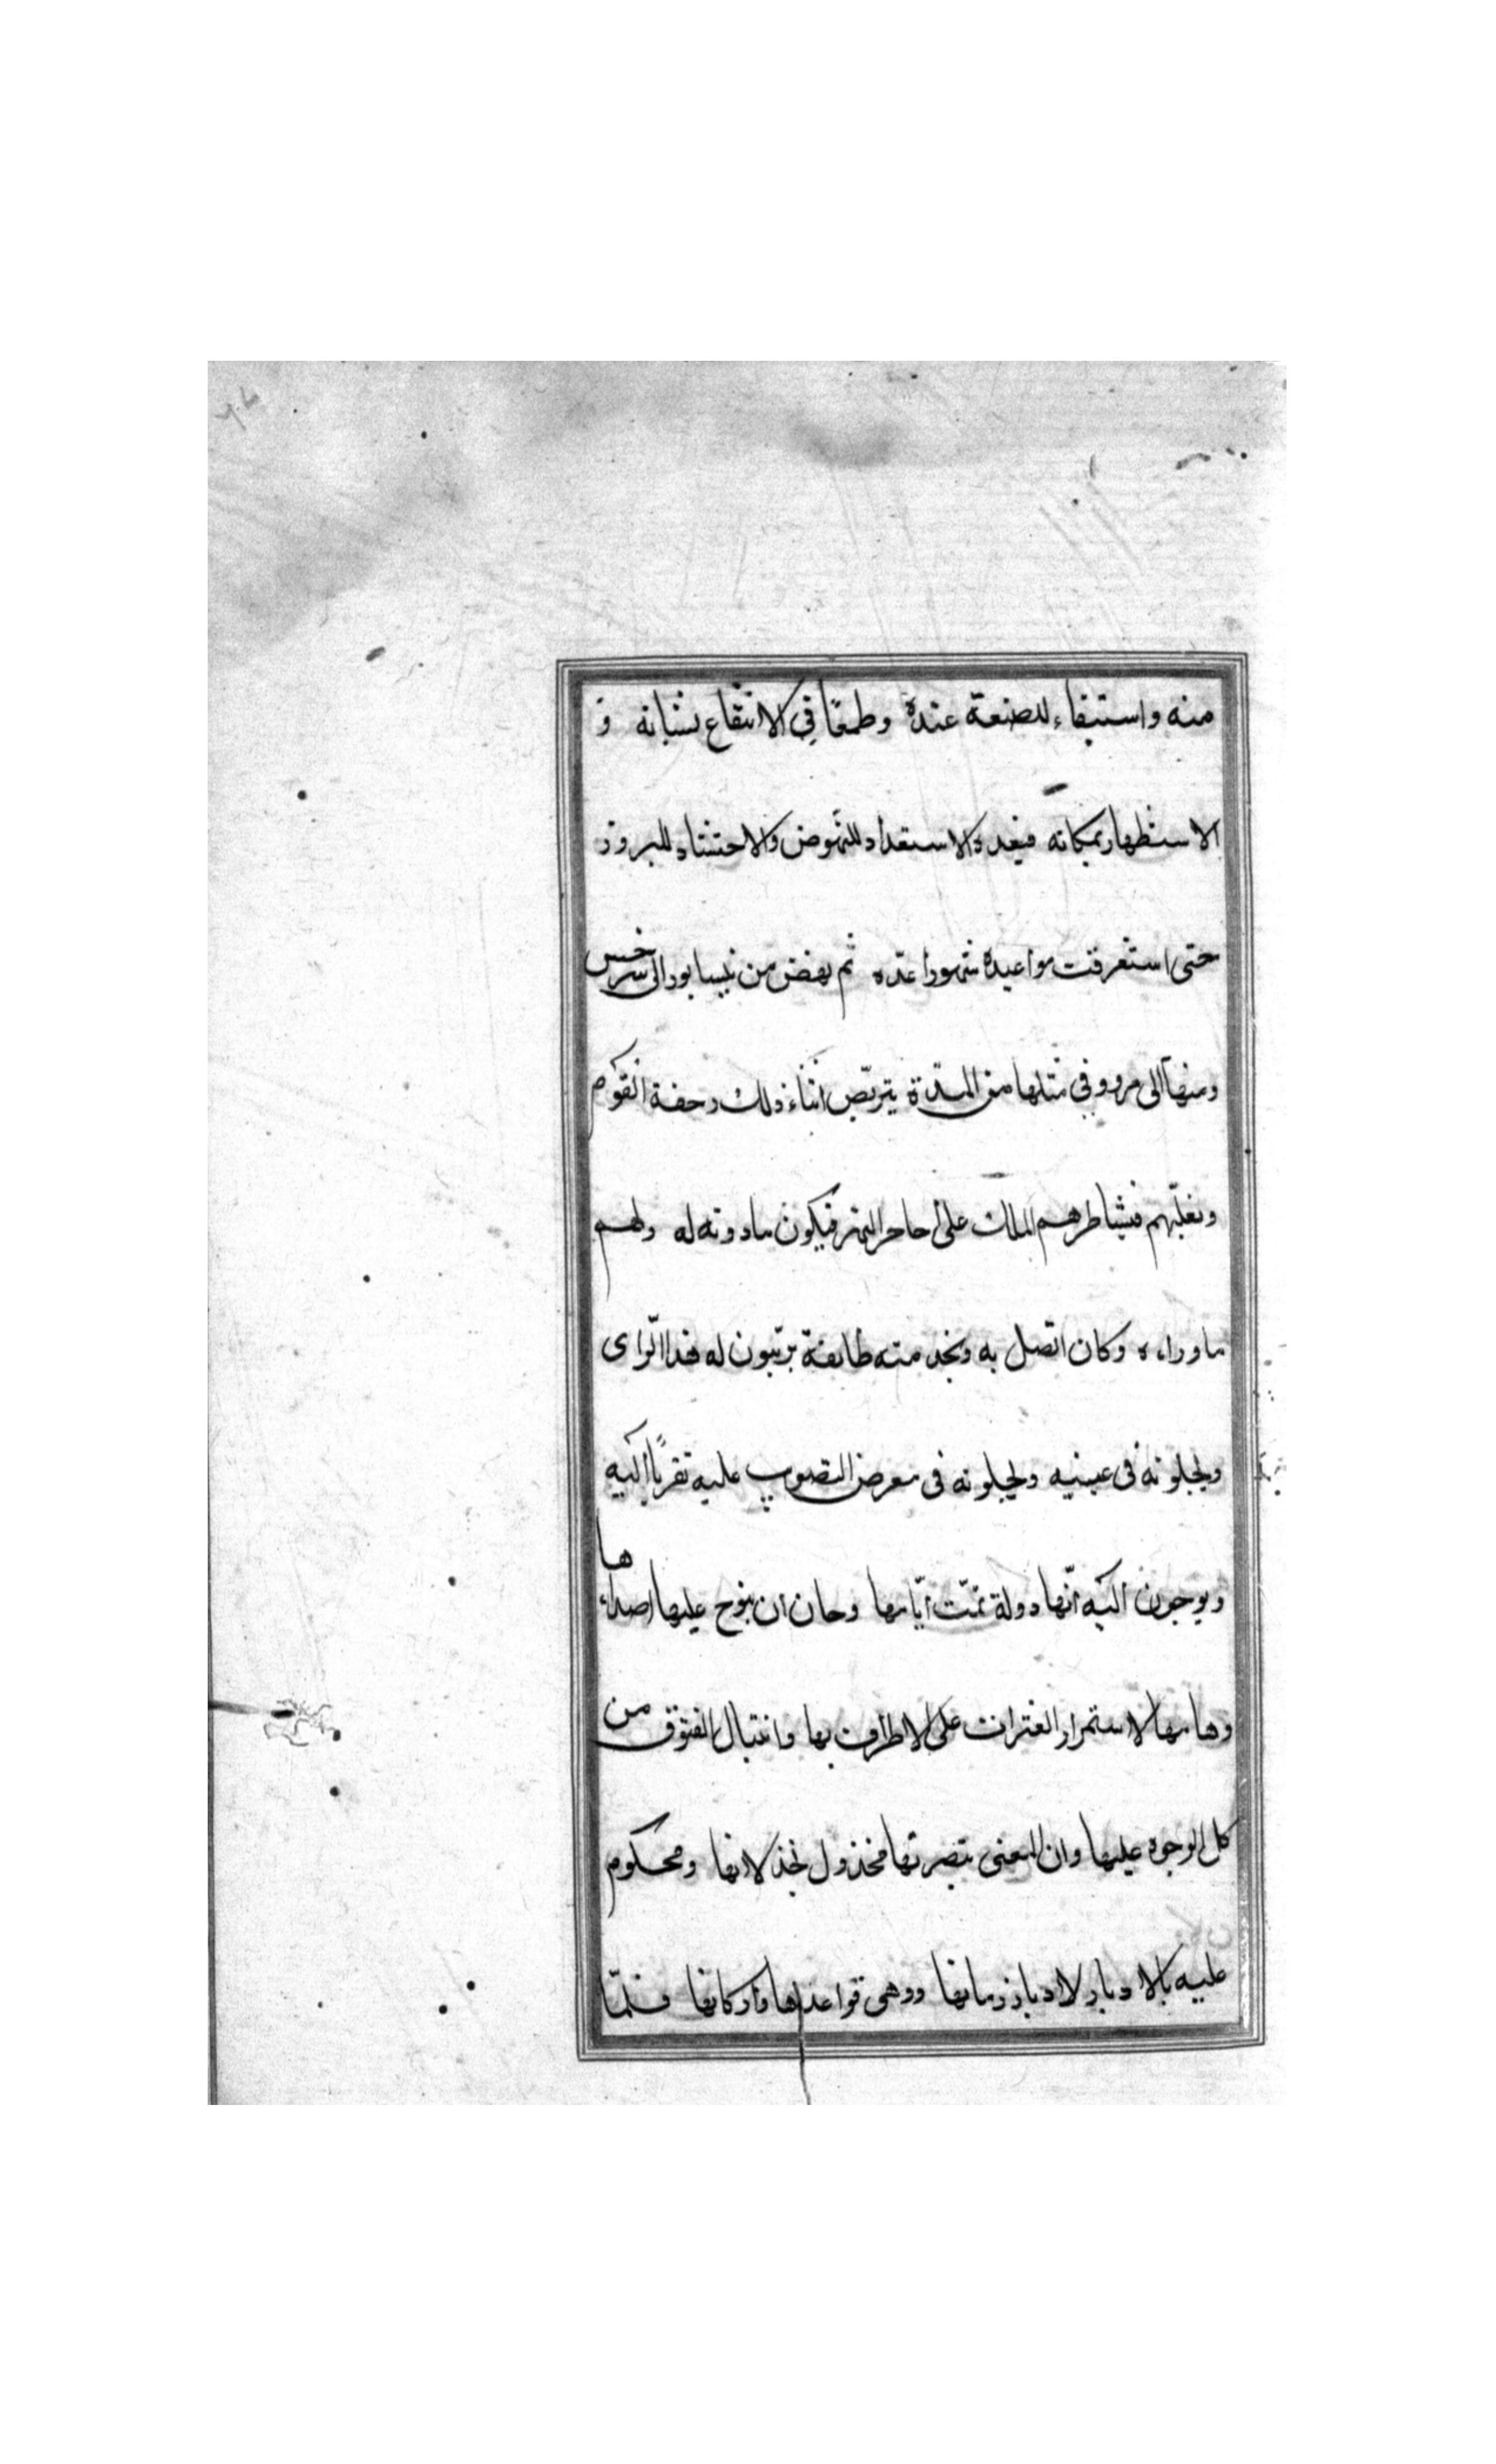 منه واستبقاء للصنعة عنده وطمعًا في الانتفاع بشبابه و
الاستظهار بمكانه فيعده الاستعداد للنهوض والاحتشاد للبروز
حتى استغرقت مواعيده شهورا عدّه ثم نهض من نيسابور الى سرخس
ومنها الى مرو وفى مثلها من المدّة يتربّص اثناء ذلك رحفة القوم
وتغلبّهم فيشاطرهم الملك على حاجز النهر فيكون ما دونه له ولهم
ما وراءه وكان اتّصل به ونجد منته طايفة يرتبّون له هذا الرّاى
ويجلونه فى عينيه ويجلونه فى معرض التصويب عليه تقربًا اليه
ويوحون اليه انّها دولة تمّت ايّامها وحان ان ينوح عليها اصداءها
وهامها لاستمرار العثرات على الاطراف بها وانثيال الفتوق من
كل الوجوه عليها وان المعنى بنصرتها مخذول بخذلانها ومحكوم
عليه بالادبار لادبار زمانها ووهى قواعدها واركانها فلمّا